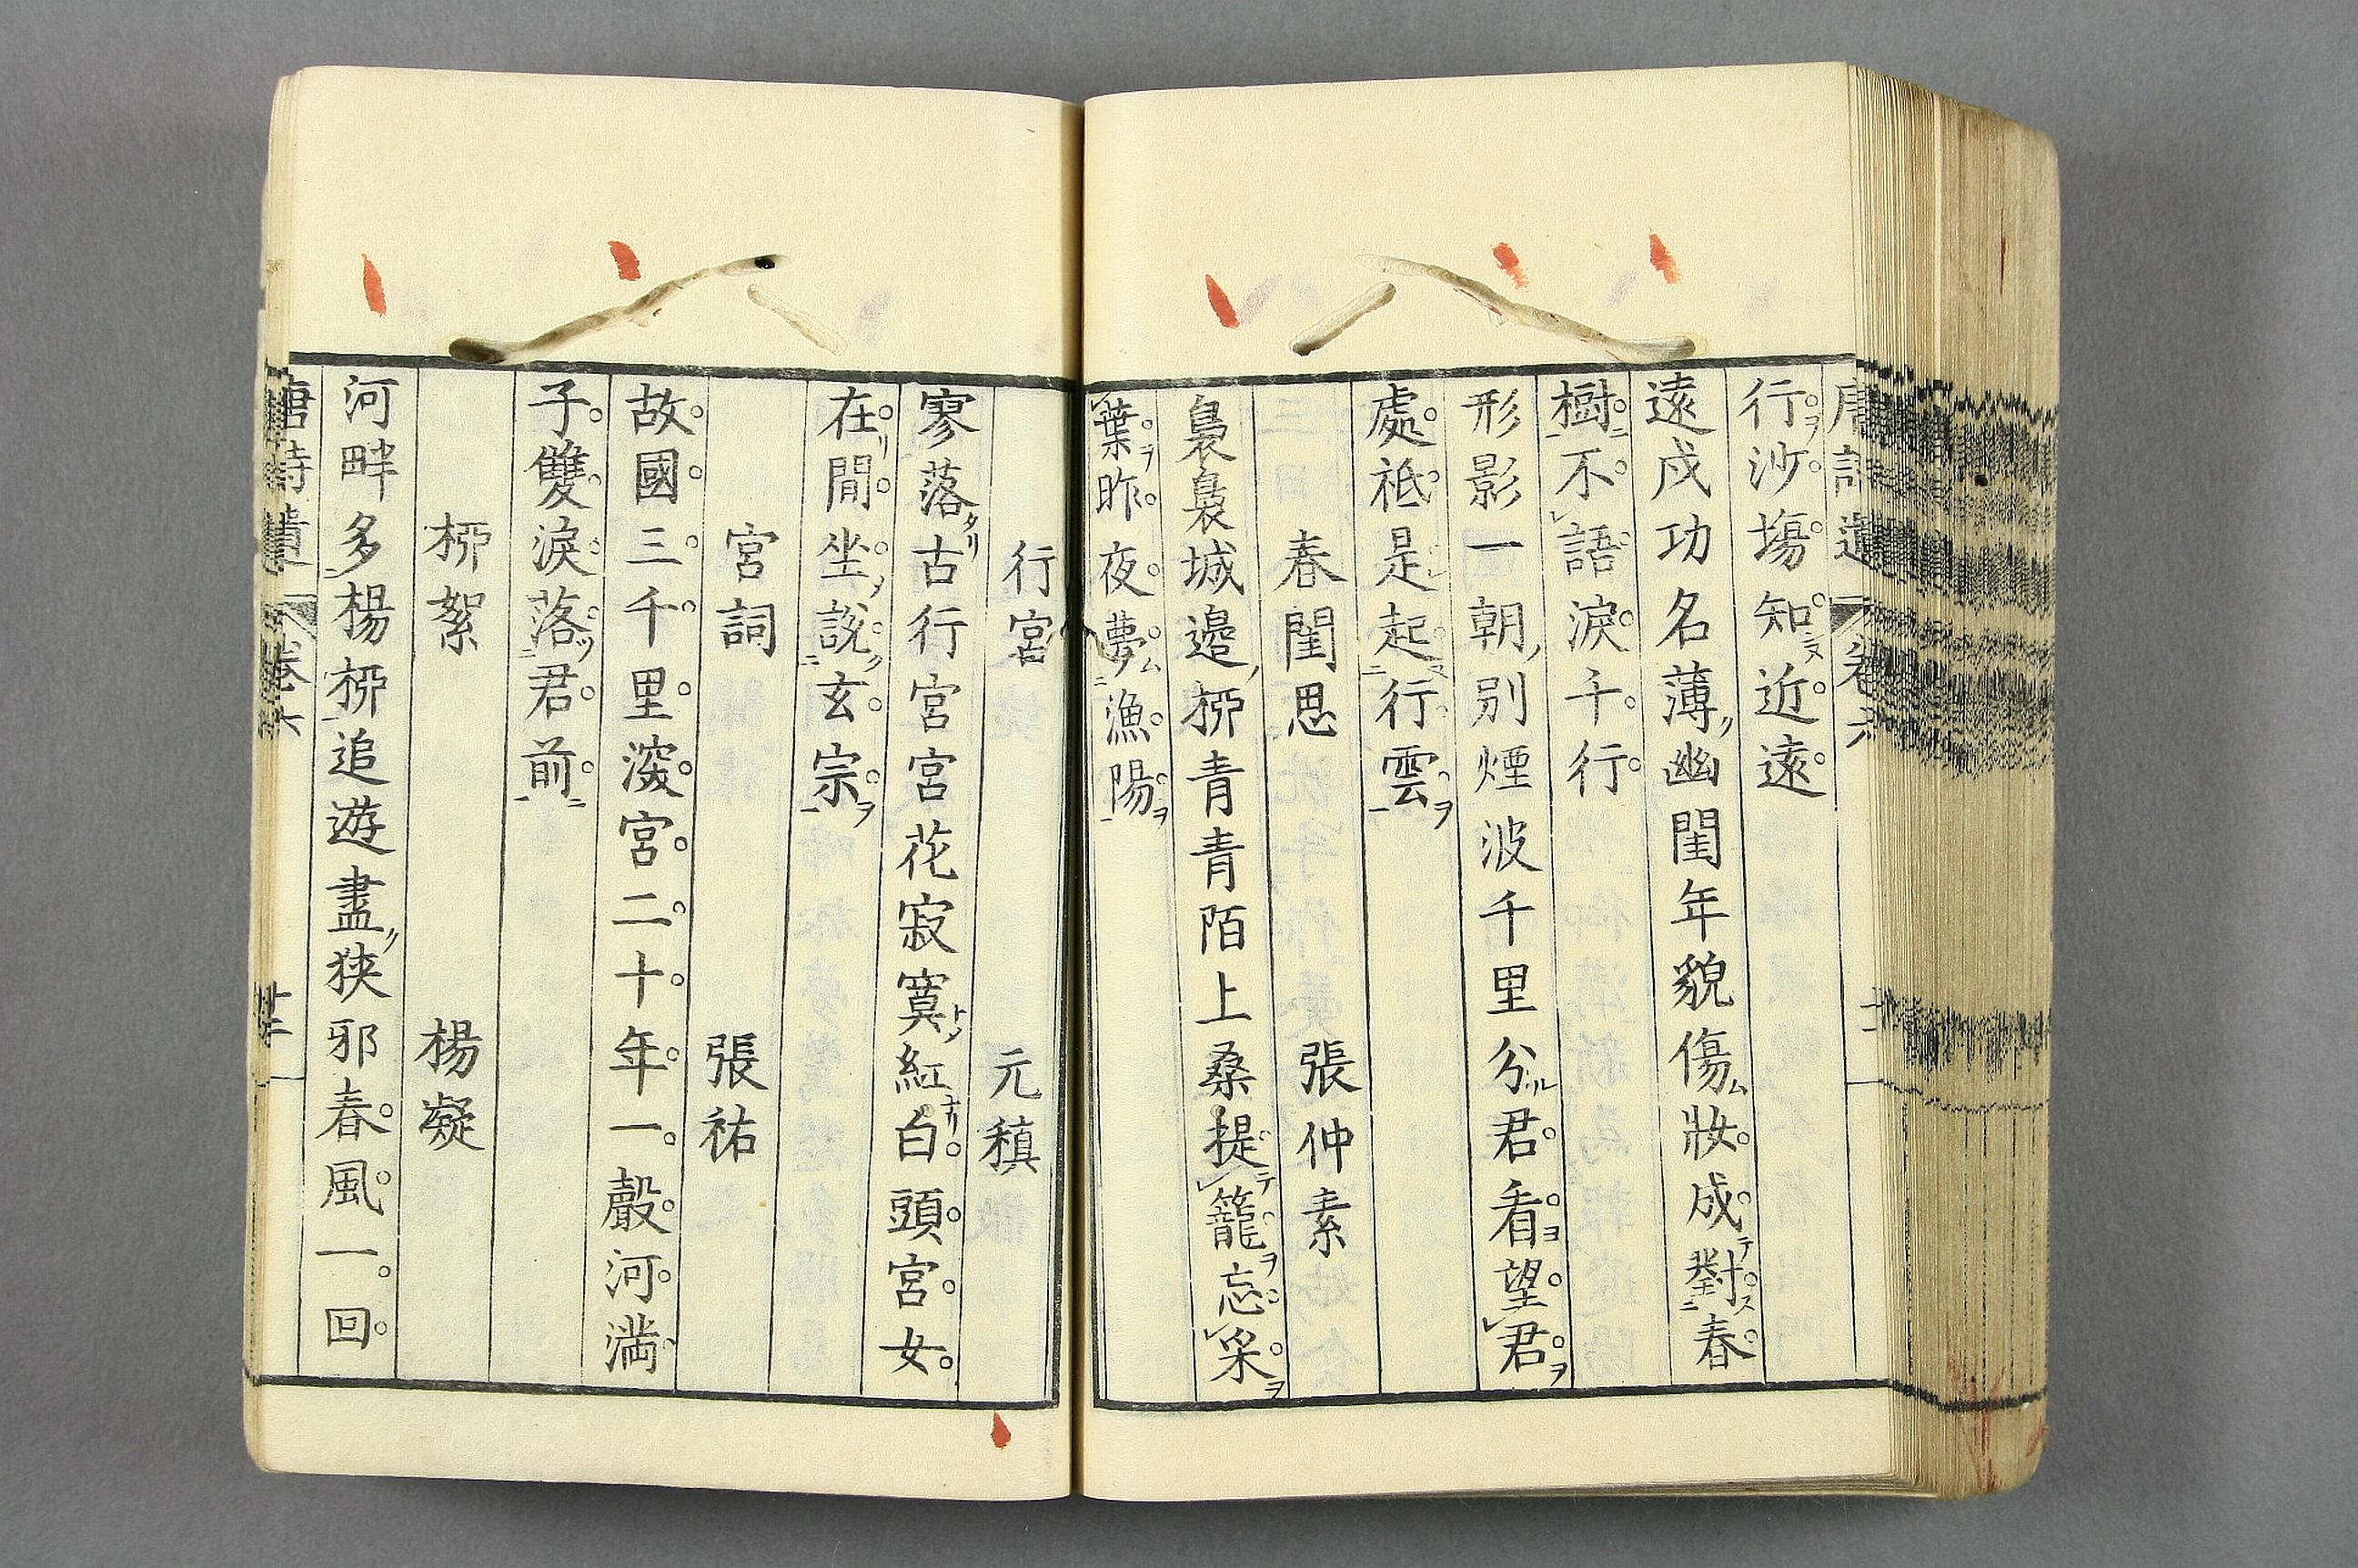 行沙塲知近遠
遠戍功名薄幽閨年貌傷妝成對春
樹不語淚千行
形影一朝別煙波千里分君看望君
處祗是起行雲
春閨思 張仲素
裊裊城邊柳青青陌上桑提籠忘采
葉昨夜夢漁陽
行宮 元稹
寥落古行宮宮花寂寞紅白頭宮女
在閒坐說玄宗
宮詞 張祐
故國三千里深宮二十年一聲河満
子雙淚落君前
柳絮 楊凝
河畔多楊柳追遊盡狹邪春風一回
唐詩 卷六